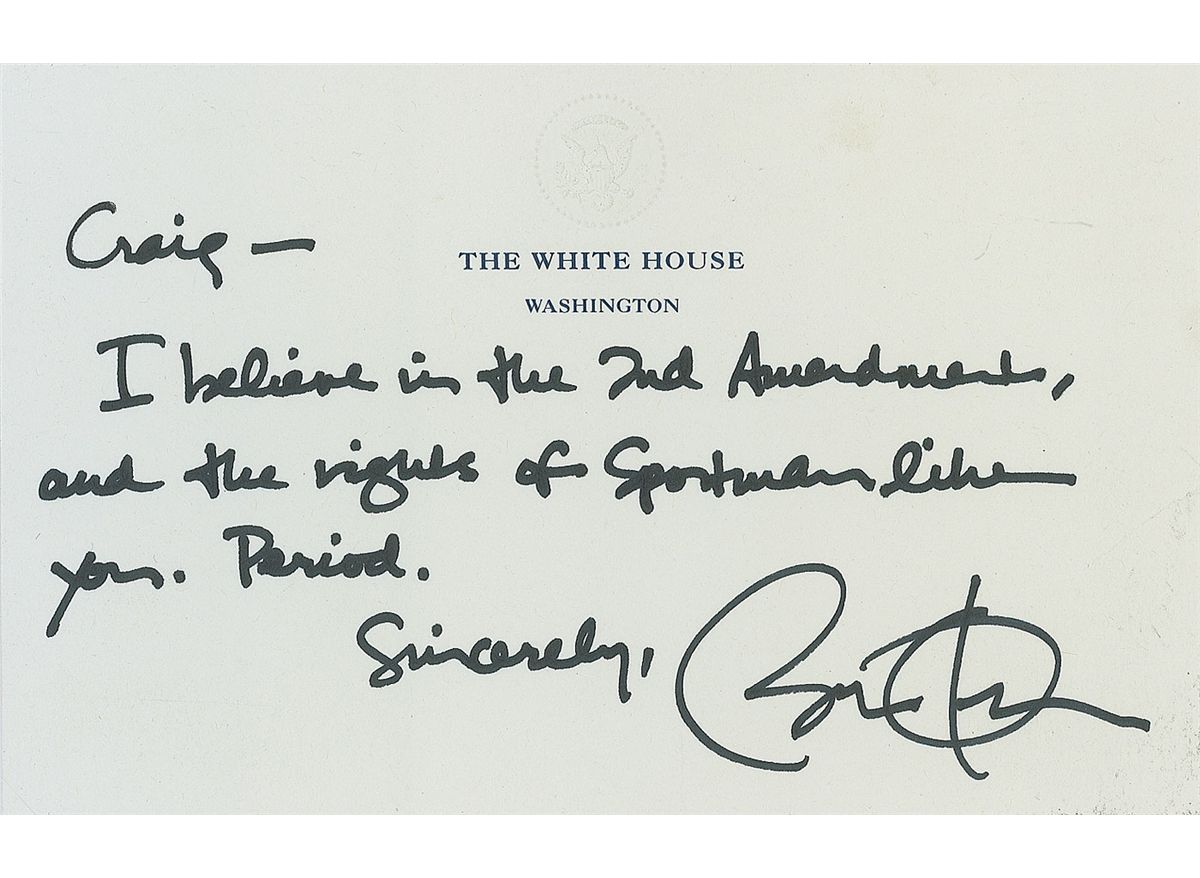 Craig —
THE WHITE HOUSE
WASHINGTON
I believe in the 2nd Amendment,
and the rights of Sportsman like
you. Period.
Sincerely,